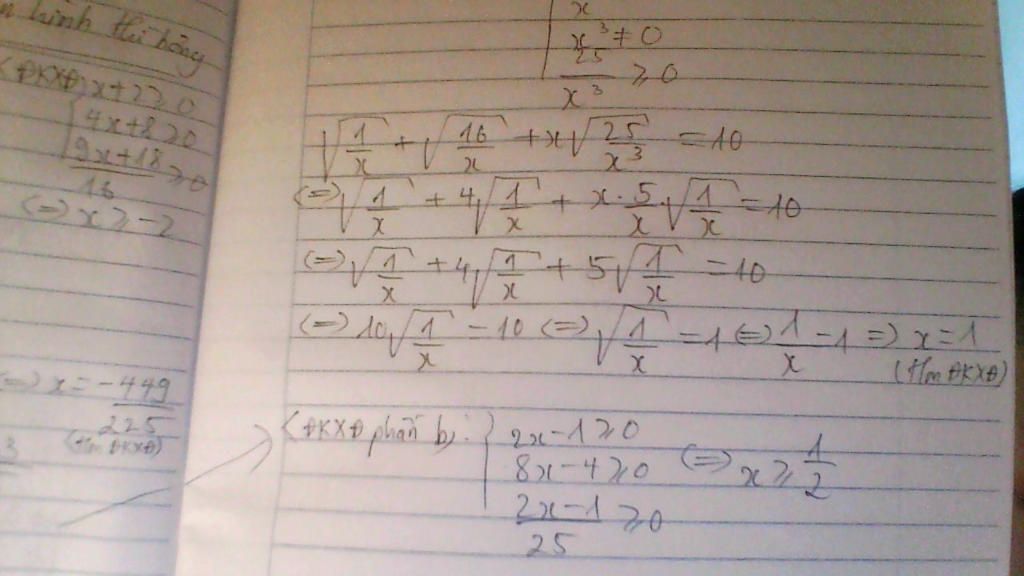 hình thi hồng
(ĐKXĐ) x+2 ≥ 0
4x+8 ≥ 0
9x+18
16 ≥ 0
(=) x ≥ -2
(=) x = -449
225
(tm ĐKXĐ)
3
x
x³ ≠ 0
25
x³ ≥ 0
√(1/x) + √(16/x) + x√(25/x³) = 10
(=) √(1/x) + 4√(1/x) + x·5/x·√(1/x) = 10
(=) √(1/x) + 4√(1/x) + 5√(1/x) = 10
(=) 10√(1/x) = 10 (=) √(1/x) = 1 (=) 1/x = 1 => x = 1
(tm ĐKXĐ)
(ĐKXĐ phần b): { 2x-1 ≥ 0
8x-4 ≥ 0 (=) x ≥ 1/2
2x-1
25 ≥ 0